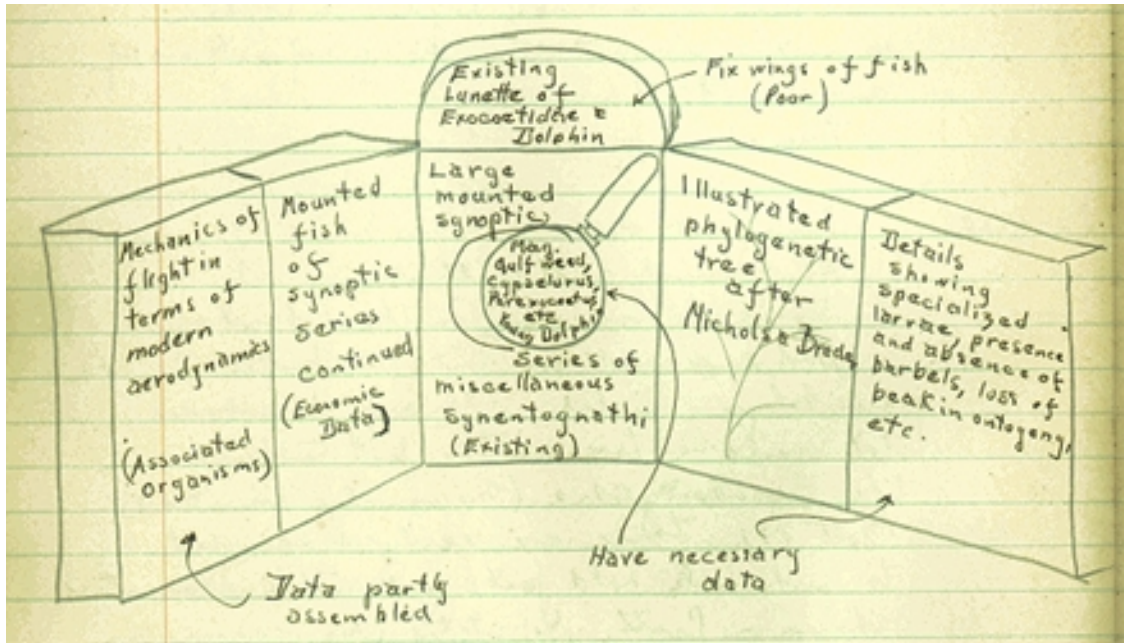 Existing
Lunette of
Exocoetidae &
Dolphin
Fix wings of fish
(Poor)
Mechanics of
flight in
terms of
modern
aerodynamics
(Associated
organisms)
Mounted
fish
of
synoptic
series
continued
(Economic
Data)
Large
mounted
synoptic
Man.
Gulf weed,
Cypselurus,
Parexocoetus,
etc
Young Dolphin
Series of
miscellaneous
Synentognathi
(Existing)
Illustrated
phylogenetic
tree
after
Nichols & Breder
Details
showing
specialized
larvae, presence
and absence of
barbels, loss of
beak in ontogeny,
etc.
Data partly
assembled
Have necessary
data